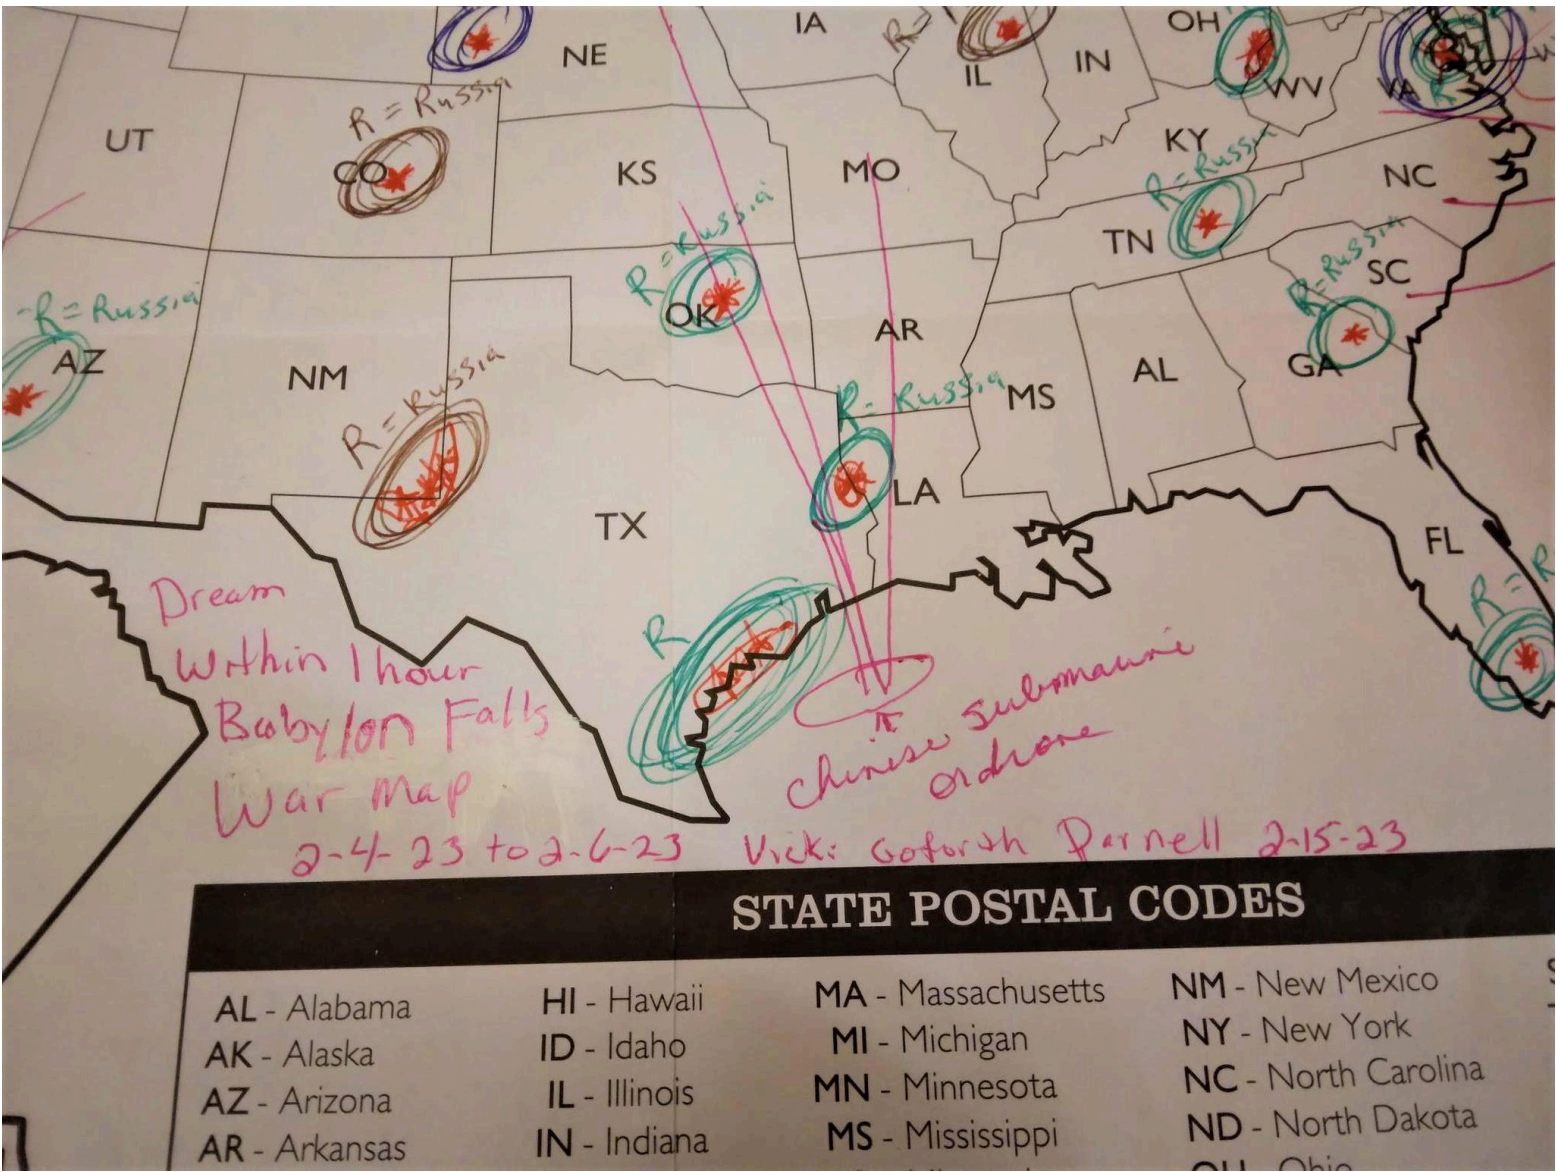 IA
OH
NE
IL
IN
WV
VA
R = Russia
UT
CO
KS
MO
KY
R = Russia
NC
R = Russia
TN
R = Russia
SC
R = Russia
OK
AR
AZ
NM
R = Russia
R - Russia
MS
AL
GA
LA
TX
FL
R = R
R
Dream
Within 1 hour
Babylon Falls
War Map
2-4-23 to 2-6-23
Chinese submarine
or drone
Vicki Goforth Parnell 2-15-23
STATE POSTAL CODES
AL - Alabama
AK - Alaska
AZ - Arizona
AR - Arkansas
HI - Hawaii
ID - Idaho
IL - Illinois
IN - Indiana
MA - Massachusetts
MI - Michigan
MN - Minnesota
MS - Mississippi
NM - New Mexico
NY - New York
NC - North Carolina
ND - North Dakota
OH - Ohio